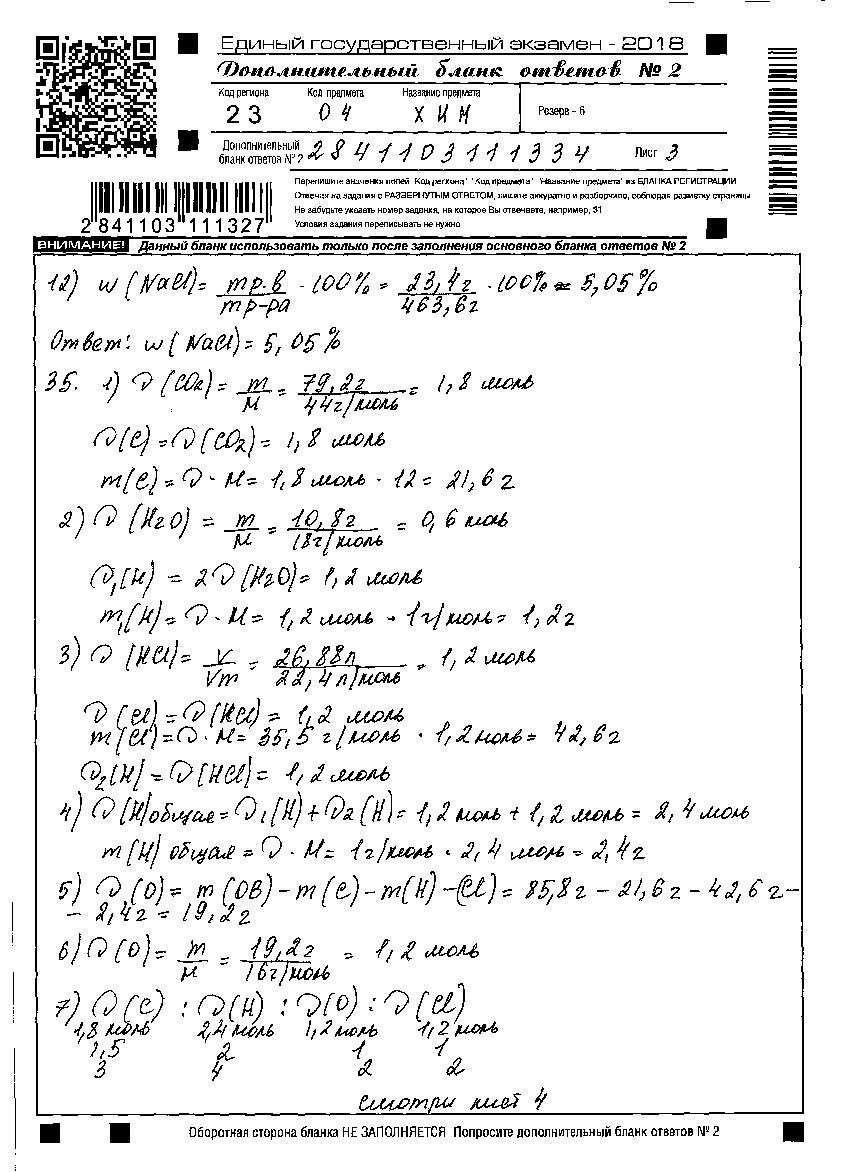 Единый государственный экзамен - 2018
Дополнительный бланк ответов № 2
Код региона Код предмета Название предмета
23 04 ХИМ Резерв - 6
Дополнительный бланк ответов № 2 2841103111334 Лист 3
Перепишите значения полей "Код региона" "Код предмета" "Название предмета" из БЛАНКА РЕГИСТРАЦИИ
Отвечая на задания с РАЗВЕРНУТЫМ ОТВЕТОМ, пишите аккуратно и разборчиво, соблюдая разметку страницы
Не забудьте указать номер задания, на которое Вы отвечаете, например, 31
Условия задания переписывать не нужно
2 841103 111327
ВНИМАНИЕ! Данный бланк использовать только после заполнения основного бланка ответов № 2
12) w (NaCl) = mр.в / mр-ра · 100% = 23,4г / 463,6г · 100% = 5,05%
Ответ: w (NaCl) = 5,05%
35. 1) ν (CO2) = m / M = 79,2г / 44г/моль = 1,8 моль
ν(C) = ν(CO2) = 1,8 моль
m(C) = ν · M = 1,8 моль · 12 = 21,6г
2) ν (H2O) = m / M = 10,8г / 18г/моль = 0,6 моль
ν1(H) = 2ν(H2O) = 1,2 моль
m1(H) = ν · M = 1,2 моль · 1г/моль = 1,2г
3) ν (HCl) = V / Vm = 26,88л / 22,4л/моль = 1,2 моль
ν (Cl) = ν(HCl) = 1,2 моль
m(Cl) = ν · M = 35,5 г/моль · 1,2моль = 42,6г
ν2(H) = ν(HCl) = 1,2 моль
4) ν(H)общая = ν1(H) + ν2(H) = 1,2 моль + 1,2 моль = 2,4 моль
m(H) общая = ν · M = 1г/моль · 2,4 моль = 2,4г
5) ν (O) = m(ОВ) - m(C) - m(H) - (Cl) = 85,8г - 21,6г - 42,6г -
- 2,4г = 19,2г
6) ν(O) = m / M = 19,2г / 16г/моль = 1,2 моль
7) ν(C) : ν(H) : ν(O) : ν(Cl)
1,8 моль 2,4 моль 1,2моль 1,2моль
1,5 2 1 1
3 4 2 2
смотри лист 4
Оборотная сторона бланка НЕ ЗАПОЛНЯЕТСЯ Попросите дополнительный бланк ответов № 2